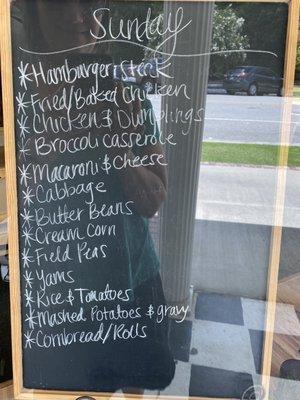 Sunday
*Hamburger Steak
*Fried/Baked Chicken
*Chicken & Dumplings
*Broccoli casserole
*Macaroni & Cheese
*Cabbage
*Butter Beans
*Cream Corn
*Field Peas
*Yams
*Rice & Tomatoes
*Mashed Potatoes & gravy
*Cornbread/Rolls